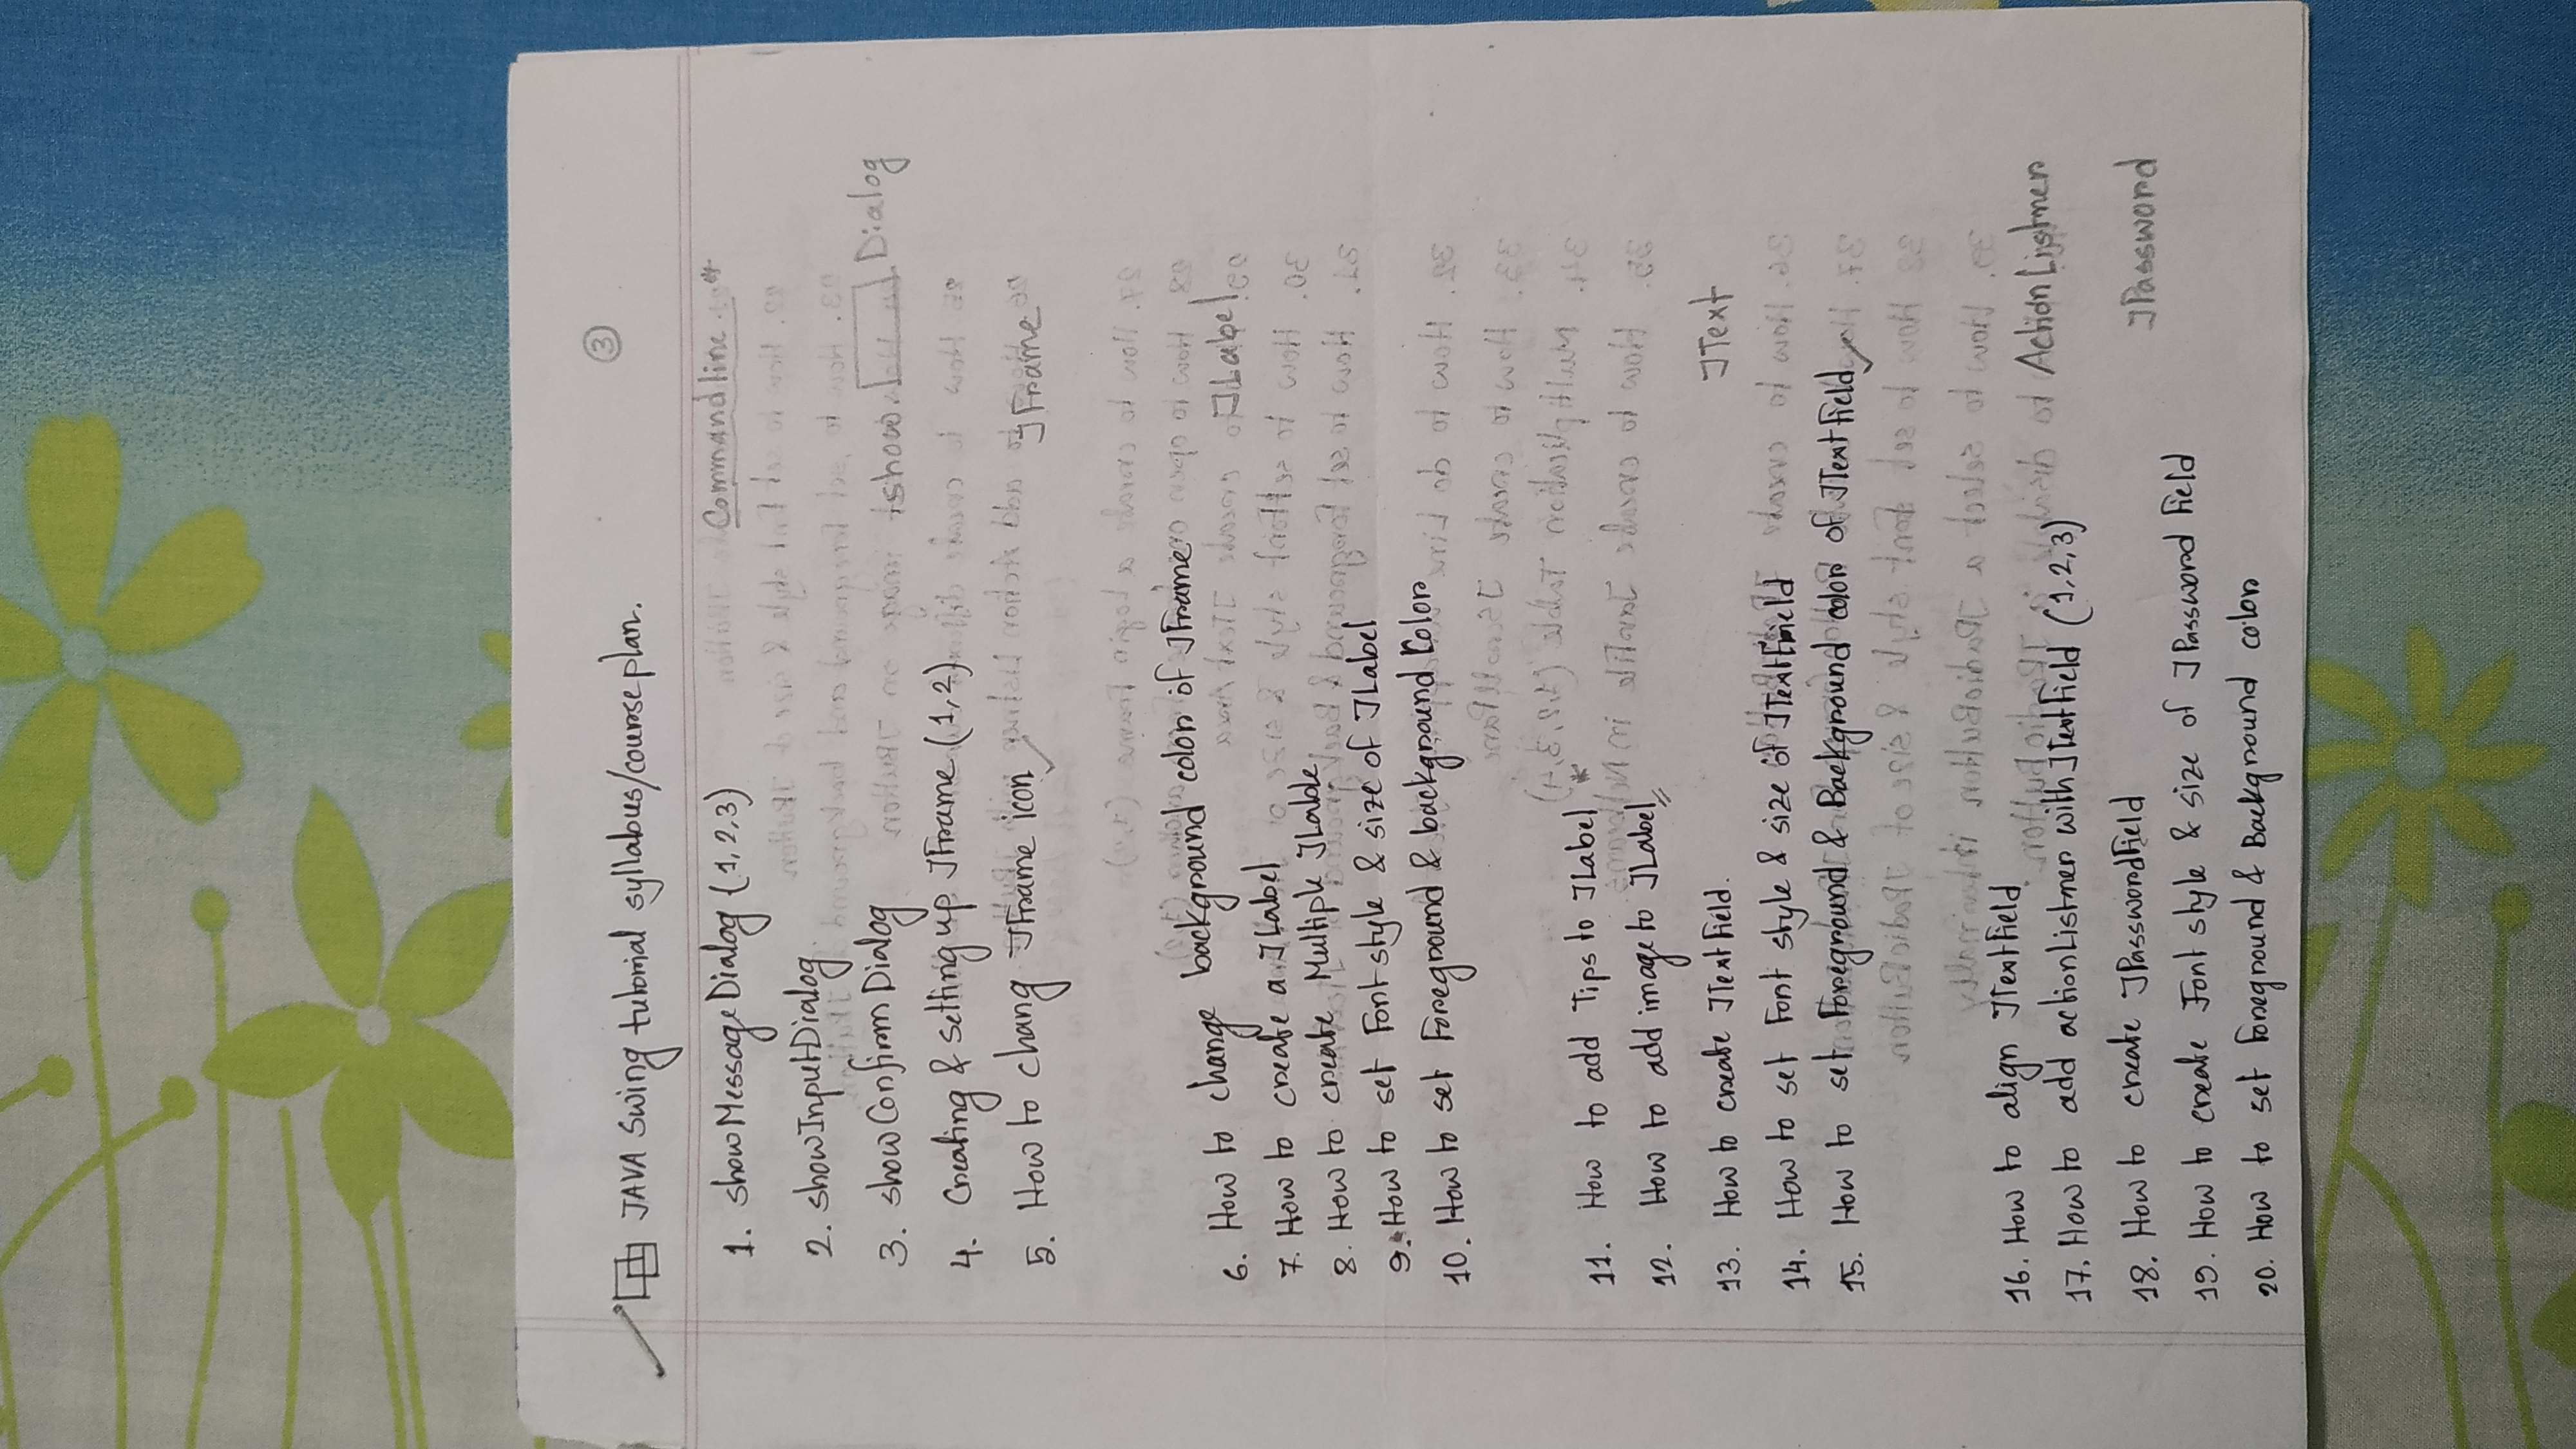 3
JAVA Swing tutorial syllabus/course plan.
Commandline.
1. showMessageDialog (1,2,3)
2. showInputDialog
3. showConfirm Dialog
show Dialog
4. Creating & setting up JFrame (1,2)
5. How to chang JFrame icon
JFrame
6. How to change background color of JFrame
JLabel
7. How to create a JLabel
8. How to create Multiple JLable
9. How to set Font style & size of JLabel
10. How to set Foreground & background Color
11. How to add Tips to JLabel *
12. How to add image to JLabel
13. How to create JTextField.
JText
14. How to set Font style & size of JTextField
15. How to set Foreground & Background color of JTextField
16. How to align JTextField
Action Listner
17. How to add actionListner with JTextField (1,2,3)
18. How to create JPasswordField
JPassword
19. How to create Font style & size of JPassword Field
20. How to set Foreground & Background color